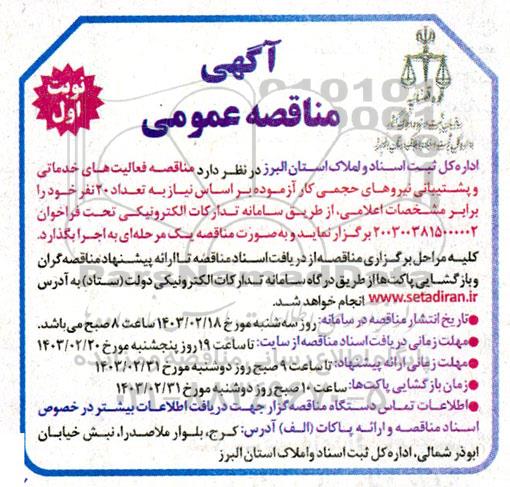 آگهی
مناقصه عمومی
نوبت
اول
قوه قضائیه
اداره کل ثبت اسناد و املاک استان البرز در نظر دارد مناقصه فعالیت‌های خدماتی
و پشتیبانی نیروهای حجمی کار آزموده بر اساس نیاز به تعداد ۲۰ نفر خود را
برابر مشخصات اعلامی، از طریق سامانه تدارکات الکترونیکی تحت فراخوان
۲۰۰۳۰۰۳۸۱۵۰۰۰۰۰۲ برگزار نماید و به صورت مناقصه یک مرحله‌ای به اجرا بگذارد.
کلیه مراحل برگزاری مناقصه از دریافت اسناد مناقصه تا ارائه پیشنهاد مناقصه گران
و بازگشایی پاکت‌ها از طریق درگاه سامانه تدارکات الکترونیکی دولت (ستاد) به آدرس
www.setadiran.ir انجام خواهد شد.
●تاریخ انتشار مناقصه در سامانه: روز سه شنبه مورخ ۱۴۰۳/۰۲/۱۸ ساعت ۸ صبح می‌باشد.
●مهلت زمانی دریافت اسناد مناقصه از سایت: تا ساعت ۱۹ روز پنجشنبه مورخ ۱۴۰۳/۰۲/۲۰
●مهلت زمانی ارائه پیشنهاد: تا ساعت ۹ صبح روز دوشنبه مورخ ۱۴۰۳/۰۲/۳۱
●زمان بازگشایی پاکت‌ها: ساعت ۱۰ صبح روز دوشنبه مورخ ۱۴۰۳/۰۲/۳۱
●اطلاعات تماس دستگاه مناقصه گزار جهت دریافت اطلاعات بیشتر در خصوص
اسناد مناقصه و ارائه پاکات (الف) آدرس: کرج، بلوار ملاصدرا، نبش خیابان
ابوذر شمالی، اداره کل ثبت اسناد و املاک استان البرز
ParsNamadData